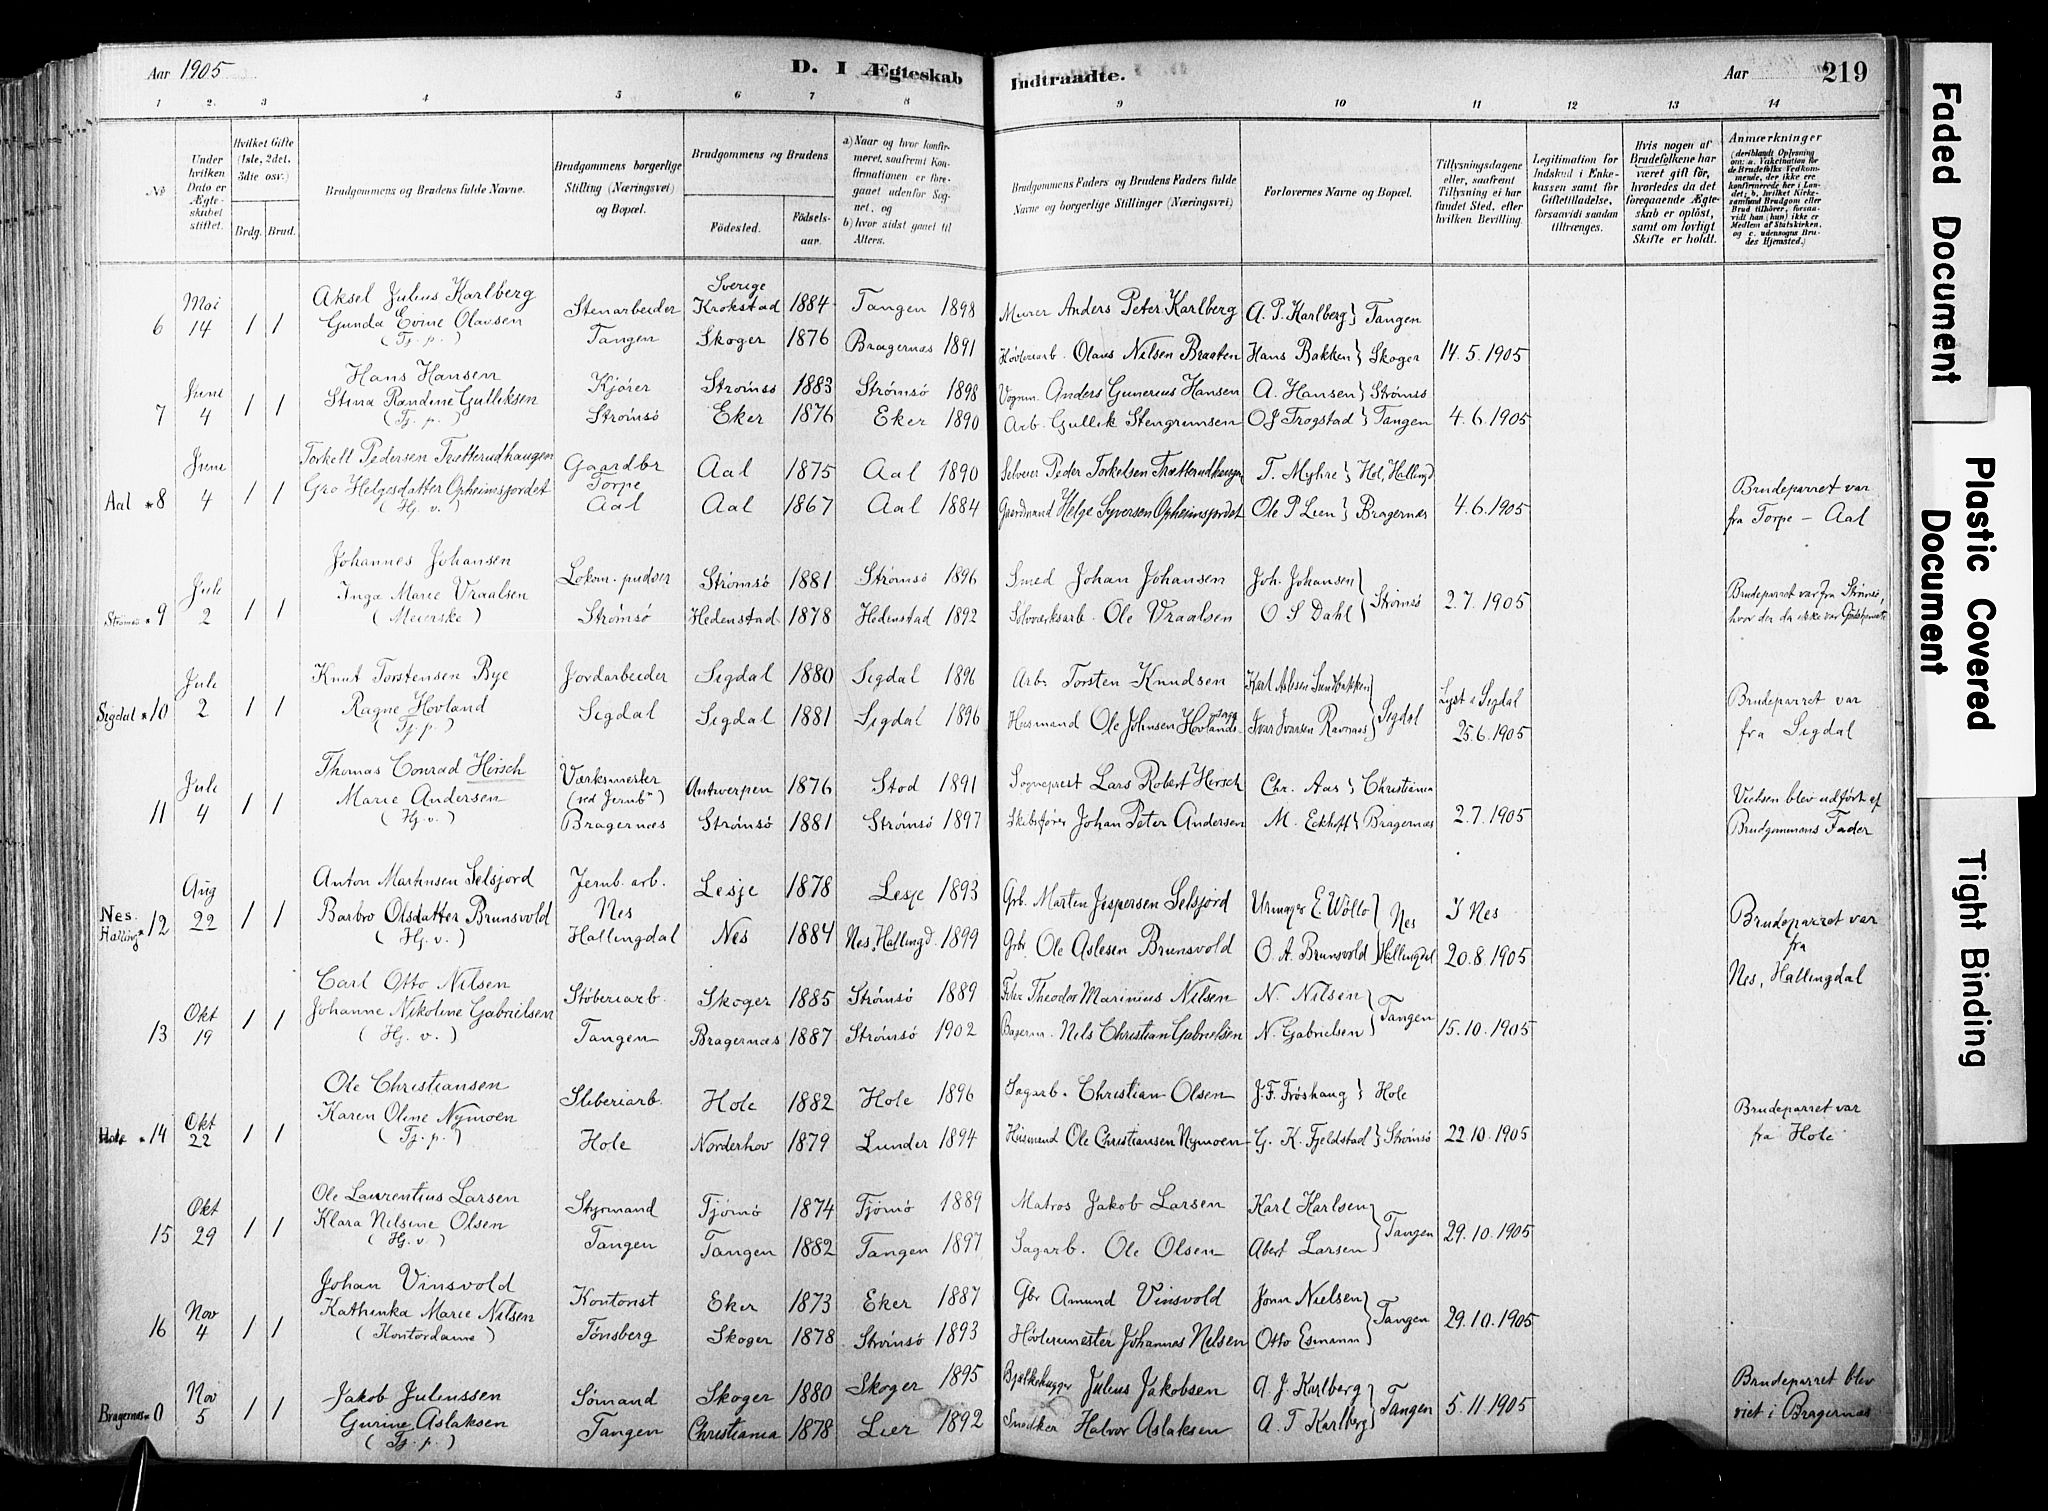 Aar 1905
D. I Ægteskab Indtraadte.
Aar 219
1 2. 3 4 5 6 7 8 9 10 11 12 13 14
No
Under hvilken Dato er Ægteskabet stiftet.
Hvilket Gifte (1ste, 2det, 3die osv.)
Brdg. Brud.
Brudgommens og Brudens fulde Navne.
Brudgommens borgerlige Stilling (Næringsvei) og Bopæl.
Brudgommens og Brudens
Födested.
Födselsaar.
a) Naar og hvor konfirmeret, saafremt Konfirmationen er foregaaet udenfor Sognet, og
b) hvor sidst gaaet til Alters.
Brudgommens Faders og Brudens Faders fulde Navne og borgerlige Stillinger (Næringsvei)
Forlovernes Navne og Bopæl.
Tillysningsdagene eller, saafremt Tillysning ei har fundet Sted, efter hvilken Bevilling.
Legitimation for Indskud i Enkekassen samt for Giftetilladelse, forsaavidt saadan tiltrænges.
Hvis nogen af Brudefolkene har været gift før, hvorledes da det foregaaende Ægteskab er opløst, samt om lovligt Skifte er holdt.
Anmærkninger
(deriblandt Oplysning om: a. Vakcination for de Brudefolks Vedkommende, der ikke ere konfirmerede her i Landet; b. hvilket Kirkesamfund Brudgom eller Brud tilhører, forsaavidt han (hun) ikke er Medlem af Statskirken, og c. udensogns Brudes Hjemsted.)
6 Mai 14 1 1 Aksel Julius Karlberg Stenarbeider Sverige Krokstad 1884 Tangen 1898 Murer Anders Peter Karlberg A. P. Karlberg } Tangen
Gunda Evine Olavsen (Tj. p.) Tangen Skoger 1876 Bragernæs 1891 Høvleriarb. Olaus Nilsen Braaten Hans Bakken } Skoger 14. 5. 1905
7 Juni 4 1 1 Hans Hansen Kjører Strømsø 1883 Strømsö 1898 Vognm. Anders Gunerius Hansen A. Hansen } Strømsø
Stina Randine Gulliksen (Tj. p.) Strømsö Eker 1876 Eker 1890 Arb. Gullik Stengrimsen O J Trogstad } Tangen 4. 6. 1905
Aal * 8 Juni 4 1 1 Torkell Pedersen Trætterudhaugen Gaardbr Aal 1875 Aal 1890 Selveier Peder Torkelsen Trætterudhaugen T. Myhre } Hol, Hallingd
Gro Helgesdatter Opheimsjordet (Hj. v.) Torpe Aal Aal 1867 Aal 1884 Gaardmand Helge Syversen Opheimsjordet Ole P Lien } Bragernæs 4. 6. 1905 Brudeparret var fra Torpe – Aal
Strømsø * 9 Juli 2 1 1 Johannes Johansen Lokom.-pudser Strømsö 1881 Strømsö 1896 Smed Johan Johansen Joh. Johansen
Inga Marie Vraalsen (Meierske) Strømsö Hedenstad 1878 Hedenstad 1892 Sølvværksarb. Ole Vraalsen O S Dahl } Strømsö 2. 7. 1905 Brudeparret var fra Strømsö, hvor der da ikke var Gudstjeneste
Sigdal * 10 Juli 2 1 1 Knut Torstensen Bye Jordarbeider Sigdal 1880 Sigdal 1896 Arb. Torsten Knudsen Karl Aslesen Sundbakken
Ragne Hovland (Tj. p.) Sigdal Sigdal 1881 Sigdal 1896 Husmand Ole Johnsen Hovlands- Ivar Ivarsen Ravnaas } Sigdal Lyst i Sigdal 25. 6. 1905 Brudeparret var fra Sigdal
11 Juli 4 1 1 Thomas Conrad Hirsch Værksmester (ved Jernb.) Antwerpen 1876 Stod 1891 Sogneprest Lars Robert Hirsch Chr. Aas } Christiania
Marie Andersen (Hj. v.) Bragernæs Strømsö 1881 Strømsö 1897 Skibsfører Johan Peter Andersen M. Eckhoff } Bragernæs 2. 7. 1905 Vielsen blev udført af Brudgommens Fader
Nes. Halling * 12 Aug 22 1 1 Anton Martinsen Selsjord Jernb. arb. Lesje 1878 Lesje 1893 Grb. Martin Jespersen Selsjord Urmager E. Wöllo
Barbro Olsdatter Brunsvold (Hj. v.) Nes Hallingdal Nes 1884 Nes, Hallingd. 1899 Grbr. Ole Aslesen Brunsvold O. A. Brunsvold } Nes Hallingdal I Nes 20. 8. 1905 Brudeparret var fra Nes, Hallingdal
13 Okt 19 1 1 Carl Otto Nilsen Støberiarb. Skoger 1885 Strømsö 1889 Theodor Marinius Nilsen N. Nilsen
Johanne Nikoline Gabrielsen (Hj. v.) Tangen Bragernæs 1887 Strømsö 1902 Nils Christian Gabrielsen N. Gabrielsen } Tangen 15. 10. 1905
Hole * 14 Okt 22 1 1 Ole Christiansen Sliberiarb. Hole 1882 Hole 1896 Sagarb. Christian Olsen J. F. Fröshaug } Hole
Karen Oline Nymoen (Tj. p.) Hole Norderhov 1879 Lunder 1894 Husmand Ole Christiansen Nymoen G. K. Fjeldstad } Strömsö 22. 10. 1905 Brudeparret var fra Hole
15 Okt 29 1 1 Ole Laurentius Larsen Styrmand Tjömö 1874 Tjömö 1889 Matros Jakob Larsen Karl Karlsen
Klara Nilsine Olsen (Hj. v.) Tangen Tangen 1882 Tangen 1897 Sagarb. Ole Olsen Abert Larsen } Tangen 29. 10. 1905
16 Nov 4 1 1 Johan Vinsvold Kontorist Eker 1873 Eker 1887 Gbr Amund Vinsvold Jonn Nielsen
Kathinka Marie Nilsen (Kontordame) Tønsberg Skoger 1878 Strømsö 1893 Høvlerimester Johannes Nilsen Otto Esmann } Tangen 29. 10. 1905
Bragernæs * 0 Nov 5 1 1 Jakob Juliussen Sömand Skoger 1880 Skoger 1895 Bjelkehugger Julius Jakobsen A. J. Karlberg
Gurine Aslaksen (Tj. p.) Tangen Christiania 1878 Lier 1892 Snedker Halvor Aslaksen A. T Karlberg } Tangen 5. 11. 1905 Brudeparret blev viet i Bragernæs
Faded Document
Plastic Covered Document
Tight Binding